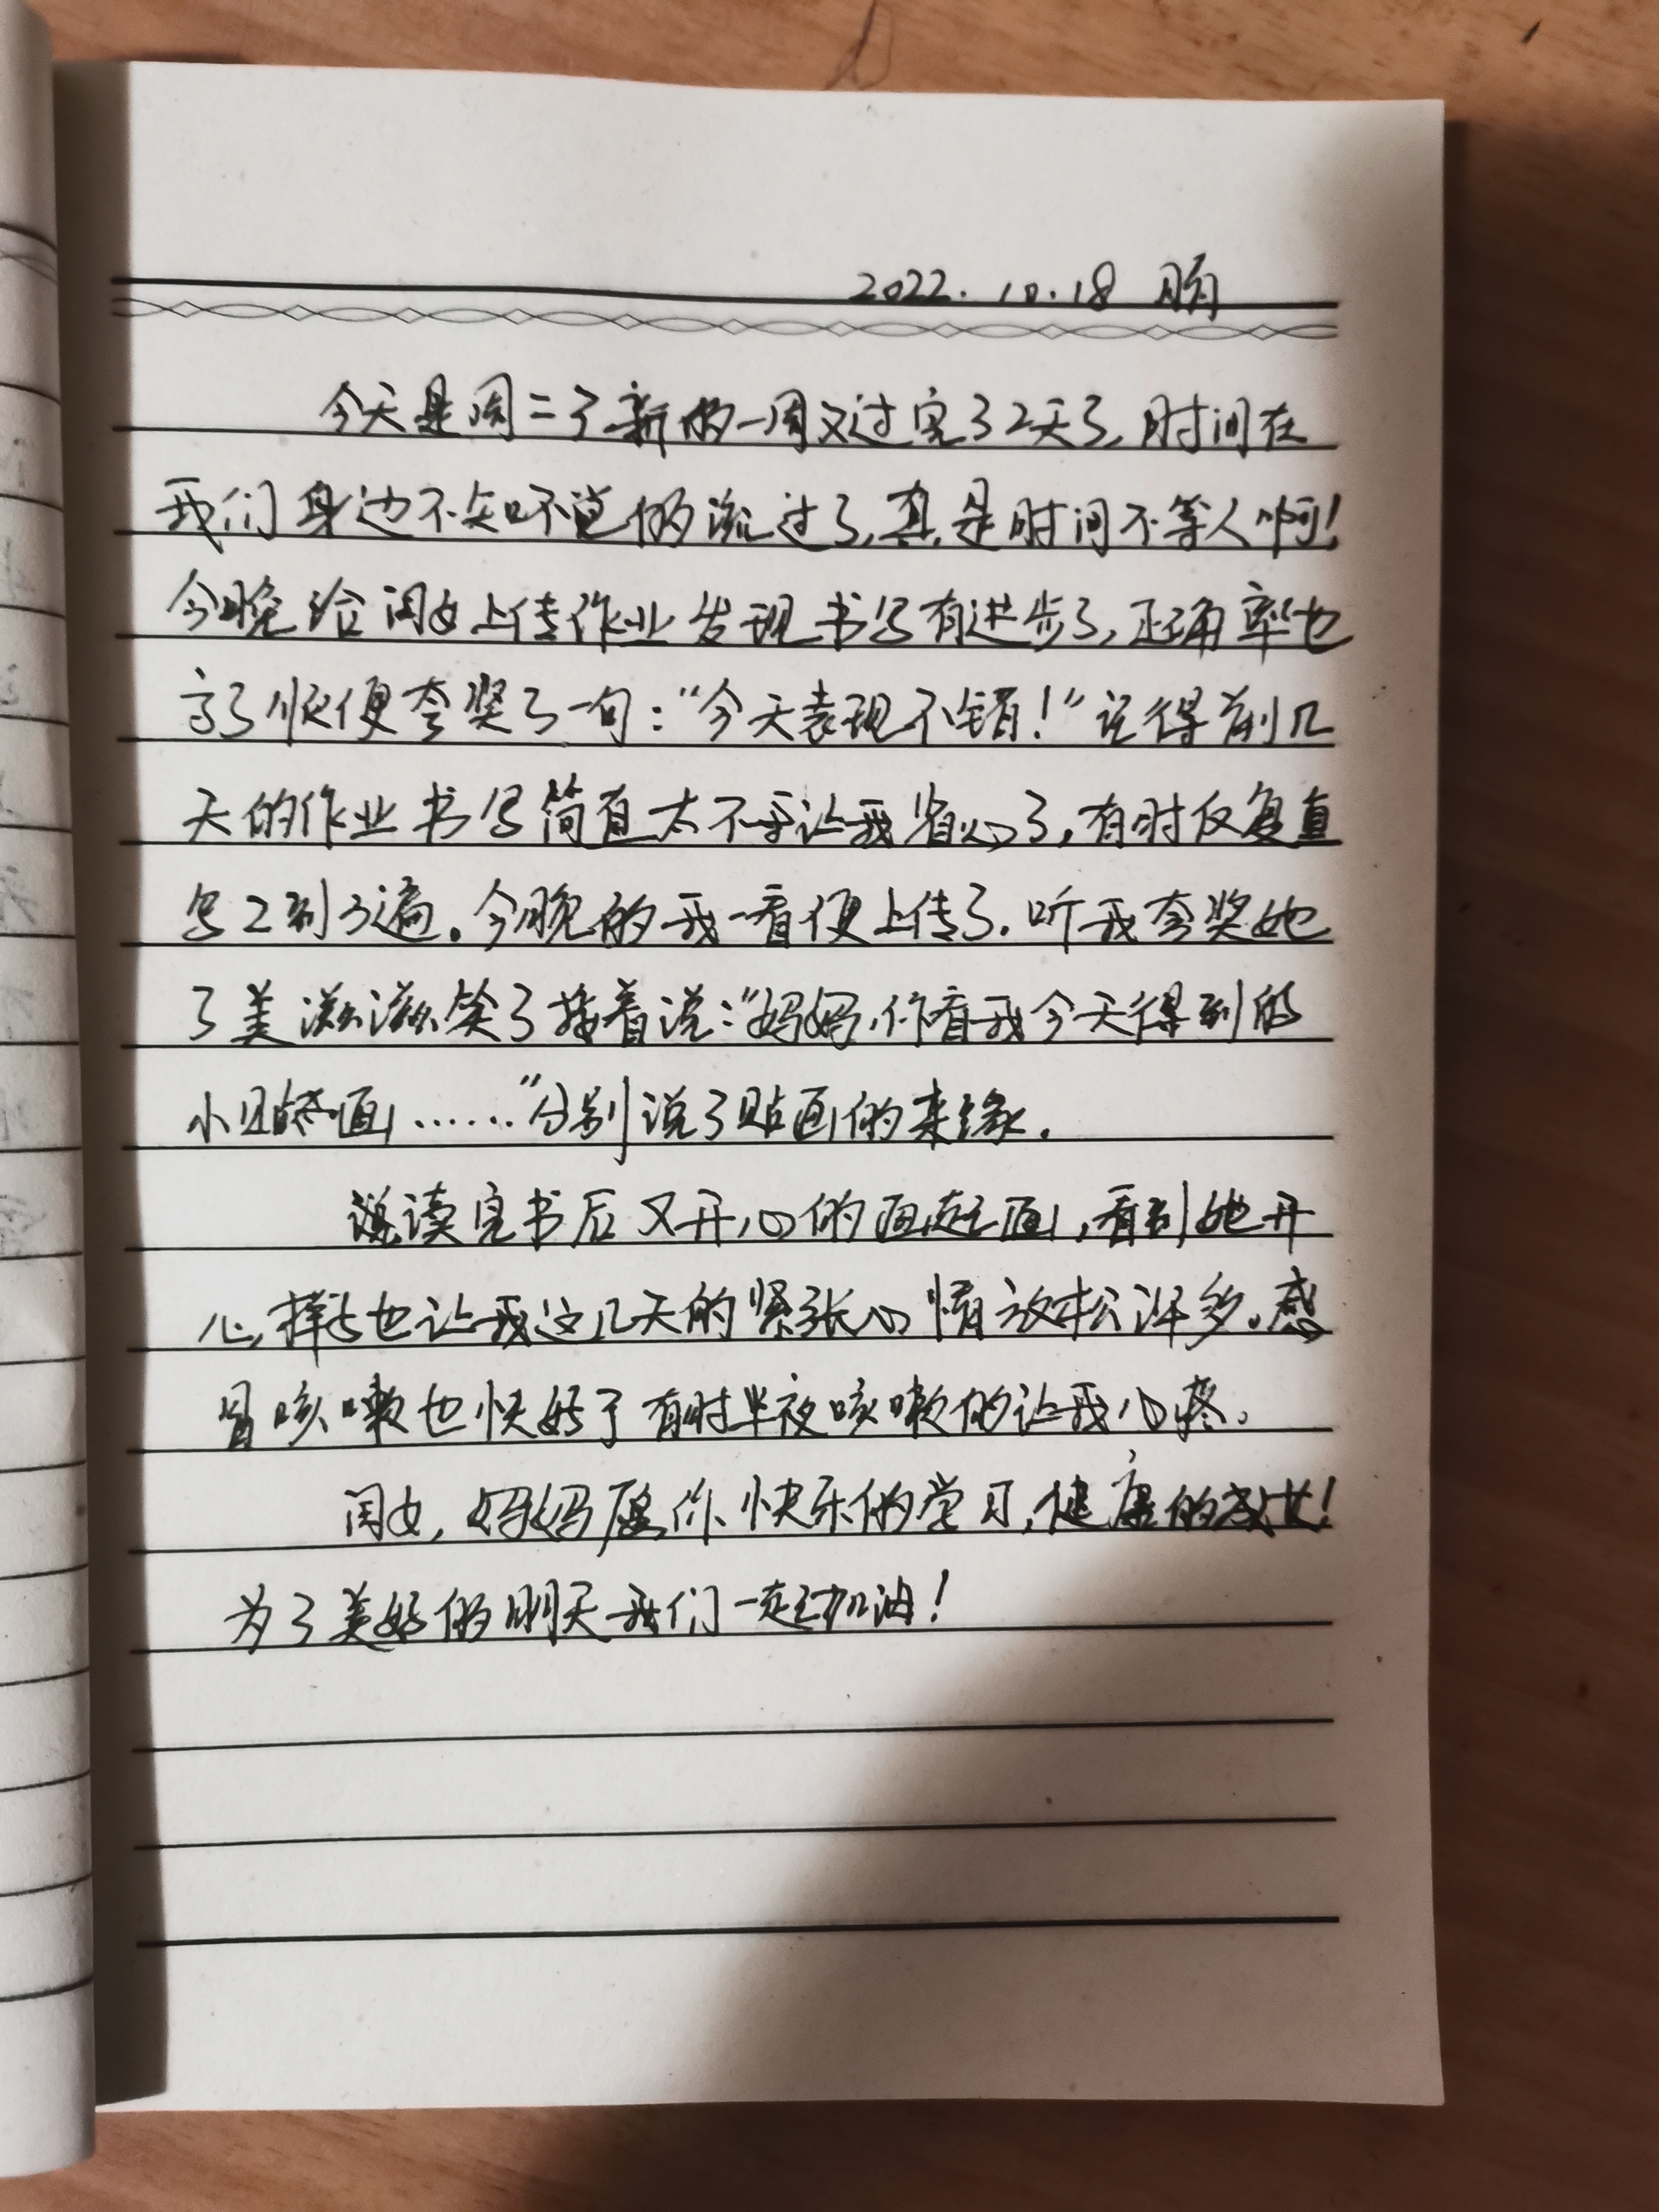 2022.10.18 晴
今天是周二了新的一周又过完了2天了,时间在
我们身边不知不觉的流过了,真是时间不等人啊!
今晚给闺女上传作业发现书写有进步了,正确率也
高了顺便夸奖了一句:“今天表现不错!”记得前几
天的作业书写简直太不让我省心了,有时反复重
写2到3遍。今晚的我一看便上传了.听我夸奖她
了美滋滋笑了接着说:“妈妈,你看我今天得到的
小贴画……”分别说了贴画的来缘.
读完书后又开心的画起画,看到她开
心样也让我这几天的紧张心情放松许多。感
冒咳嗽也快好了有时半夜咳嗽的让我心疼。
闺女,妈妈愿你快乐的学习,健康的成长!
为了美好的明天我们一起加油!